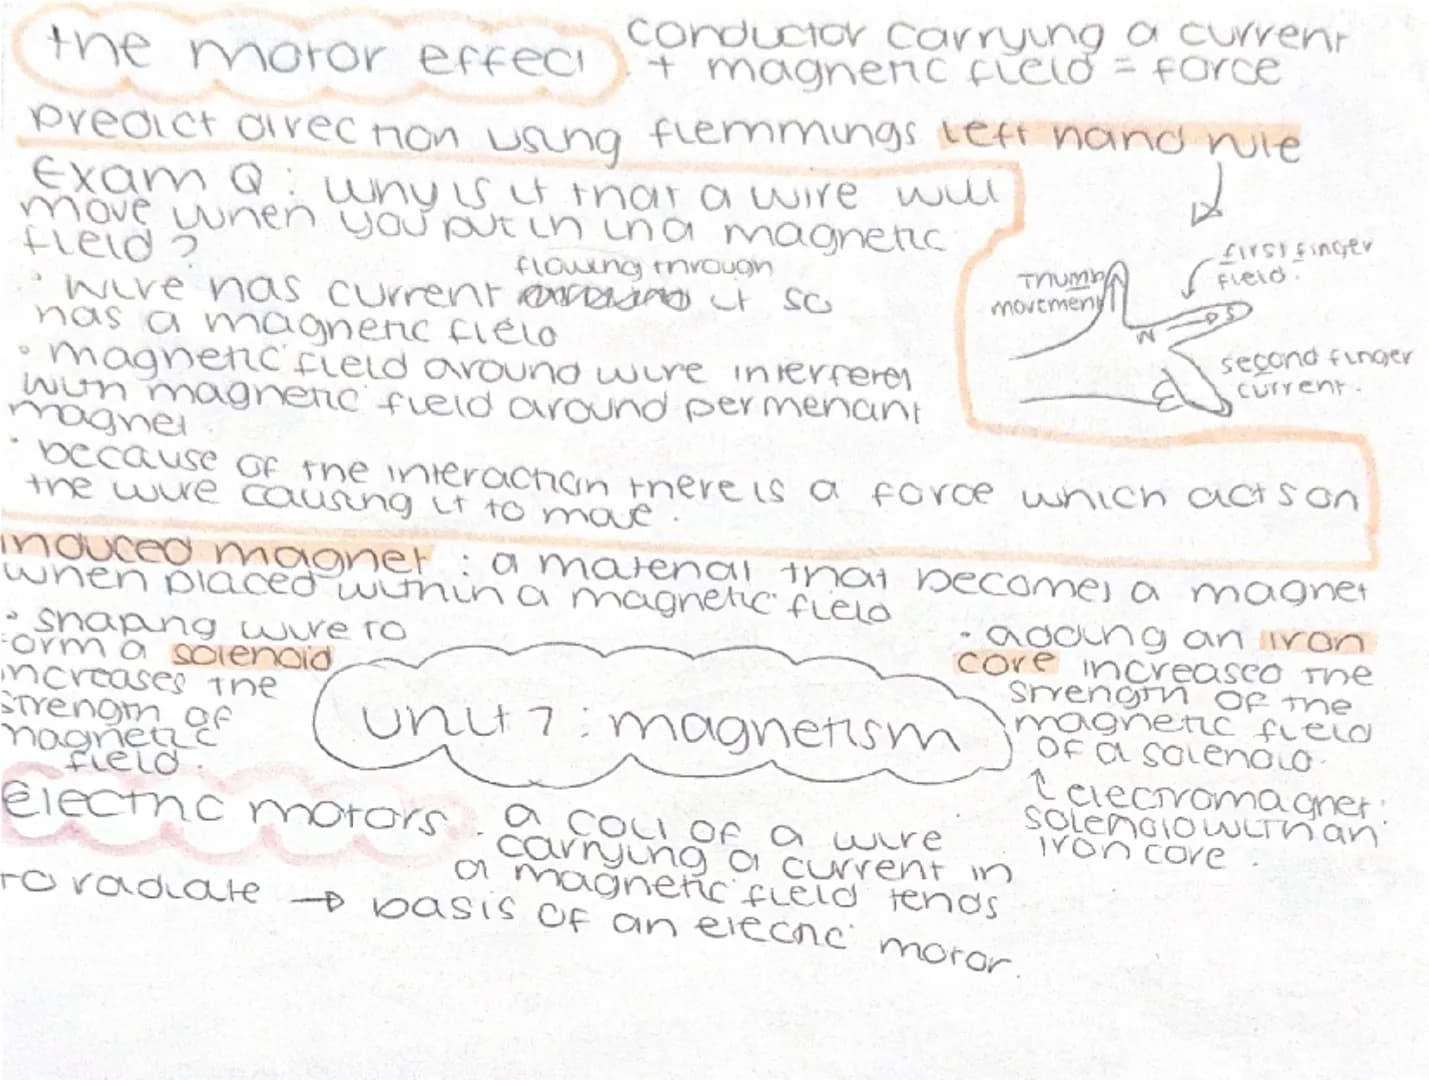 the motor effect
conductor carrying a current
+ magnetic field = force
predict direction using flemmings left hand rule
Exam Q : why is it that a wire will
move when you put in in a magnetic
field ?
flowing through
• wire has current it so
has a magnetic field
• magnetic field around wire interferes
with magnetic field around permenant
magnet.
• because of the interaction there is a force which acts on
the wire causing it to move.
first finger
field.
Thumb
movement
N
S
second finger
current.
induced magnet : a material that becomes a magnet
when placed within a magnetic field
• shaping wire to
form a solenoid
increases the
strength of
magnetic
field.
unit 7 : magnetism
• adding an iron
core increased the
strength of the
magnetic field
of a solenoid.
electromagnet:
solenoid with an
iron core.
electric motors
. a coil of a wire
carrying a current in
a magnetic field tends
to radiate → basis of an elecric motor.